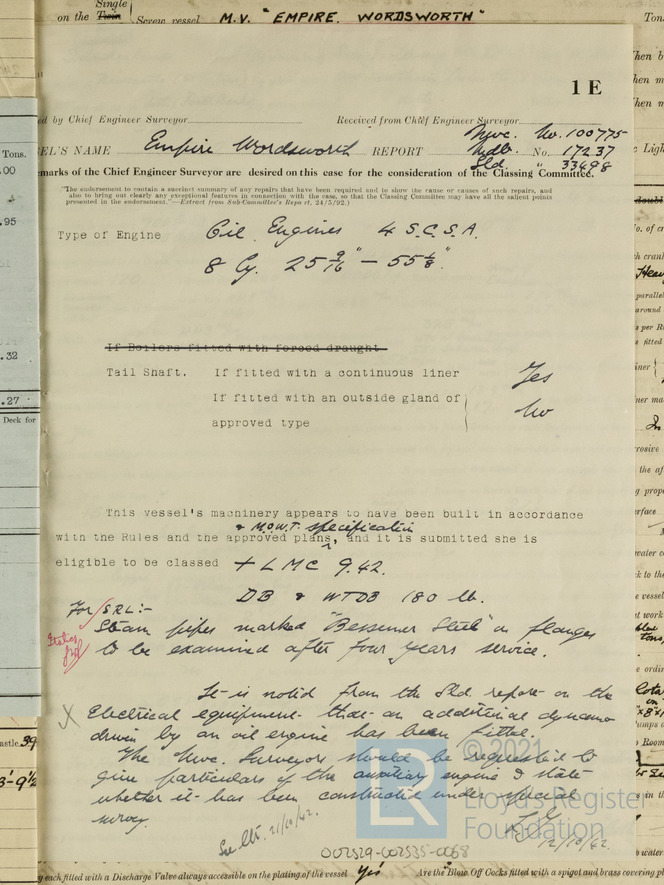 Single
on the Twin Screw vessel M.V. "EMPIRE WORDSWORTH" Ton
1 E
ed by Chief Engineer Surveyor Received from Chief Engineer Surveyor
Nwc. No. 100775
EL'S NAME Empire Wordsworth REPORT Mdb. No. 17237
Sld. " 33498
emarks of the Chief Engineer Surveyor are desired on this case for the consideration of the Classing Committee.
"The endorsement to contain a succinct summary of any repairs that have been required and to show the cause or causes of such repairs, and
also to bring out clearly any exceptional features in connection with the case, so that the Classing Committee may have all the salient points
presented in the endorsement."—Extract from Sub-Committee's Report, 24/5/92.)
Type of Engine Oil Engines 4 S.C.S.A.
8 Cy. 25 9/16" — 55 1/8".
If Boilers fitted with forced draught
Tail Shaft. If fitted with a continuous liner Yes
If fitted with an outside gland of
approved type No
This vessel's machinery appears to have been built in accordance
& M.O.W.T. specification
with the Rules and the approved plans, and it is submitted she is
eligible to be classed + LMC 9.42.
DB & WTDB 180 lb.
For SRL:-
Steam pipes marked "Bessemer Steel" on flanges
to be examined after four years service.
It is noted from the Sld. report on the
X Electrical equipment that an additional dynamo
driven by an oil engine has been fitted.
The Nwc. Surveyors should be requested to
give particulars of the auxiliary engine & state
whether it has been constructed under special
survey.
See Ltr. 21/10/42.
12/10/42.
© 2021
LR
Lloyd's Register
Foundation
002529-002535-0068
y each fitted with a Discharge Valve always accessible on the plating of the vessel Yes Are the Blow Off Cocks fitted with a spigot and brass covering pl
Tons.
.00
.95
.32
.27
Deck for
astle 39
3'-9½